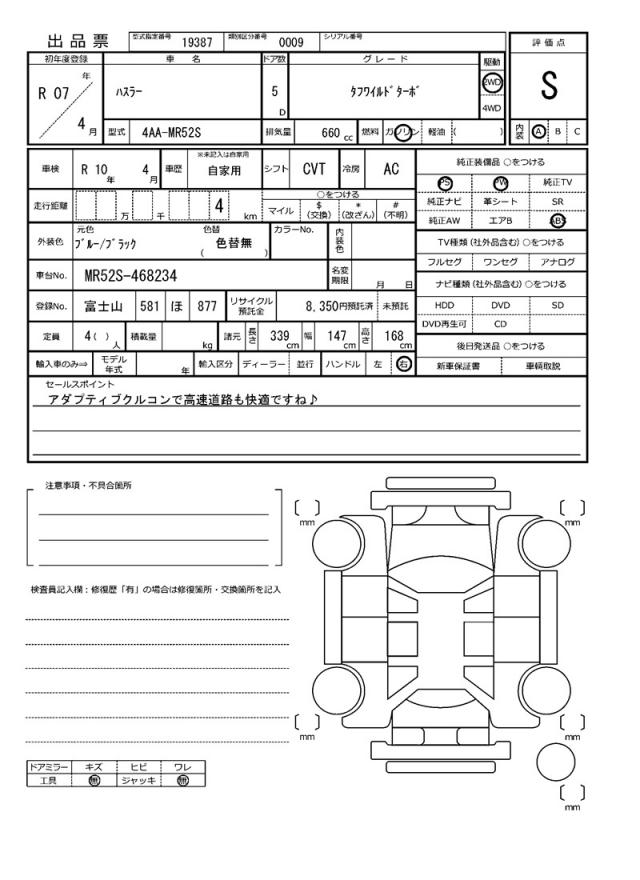 出品票 型式指定番号 19387 類別区分番号 0009 シリアル番号
評価点
S
初年度登録 車名 ドア数 グレード 駆動
R 07 年 4 月 ハスラー 5 D タフワイルドターボ 2WD 4WD
型式 4AA-MR52S 排気量 660 cc 燃料 ガソリン 軽油 ( )
内装 A B C
車検 R 10 年 4 月 車歴 ※未記入は自家用 自家用 シフト CVT 冷房 AC
走行距離 万 千 4 km
○をつける
マイル $ (交換) * (改ざん) # (不明)
外装色 元色 ブルー/ブラック 色替 ( 色替無 ) カラーNo. 内装色
車台No. MR52S-468234 名変期限 月 日
登録No. 富士山 581 ほ 877 リサイクル預託金 8,350円預託済 未預託
定員 4( ) 人 積載量 kg 諸元 長さ 339 cm 幅 147 cm 高さ 168 cm
輸入車のみ⇒ モデル年式 年 輸入区分 ディーラー 並行 ハンドル 左 右
純正装備品 ○をつける
PS PW 純正TV
純正ナビ 革シート SR
純正AW エアB ABS
TV種類 (社外品含む) ○をつける
フルセグ ワンセグ アナログ
ナビ種類 (社外品含む) ○をつける
HDD DVD SD
DVD再生可 CD
後日発送品 ○をつける
新車保証書 車輌取説
セールスポイント
アダプティブクルコンで高速道路も快適ですね♪
注意事項・不具合箇所
検査員記入欄：修復歴「有」の場合は修復箇所・交換箇所を記入
ドアミラー キズ ヒビ ワレ
工具 無 ジャッキ 無
mm
mm
mm
mm
mm